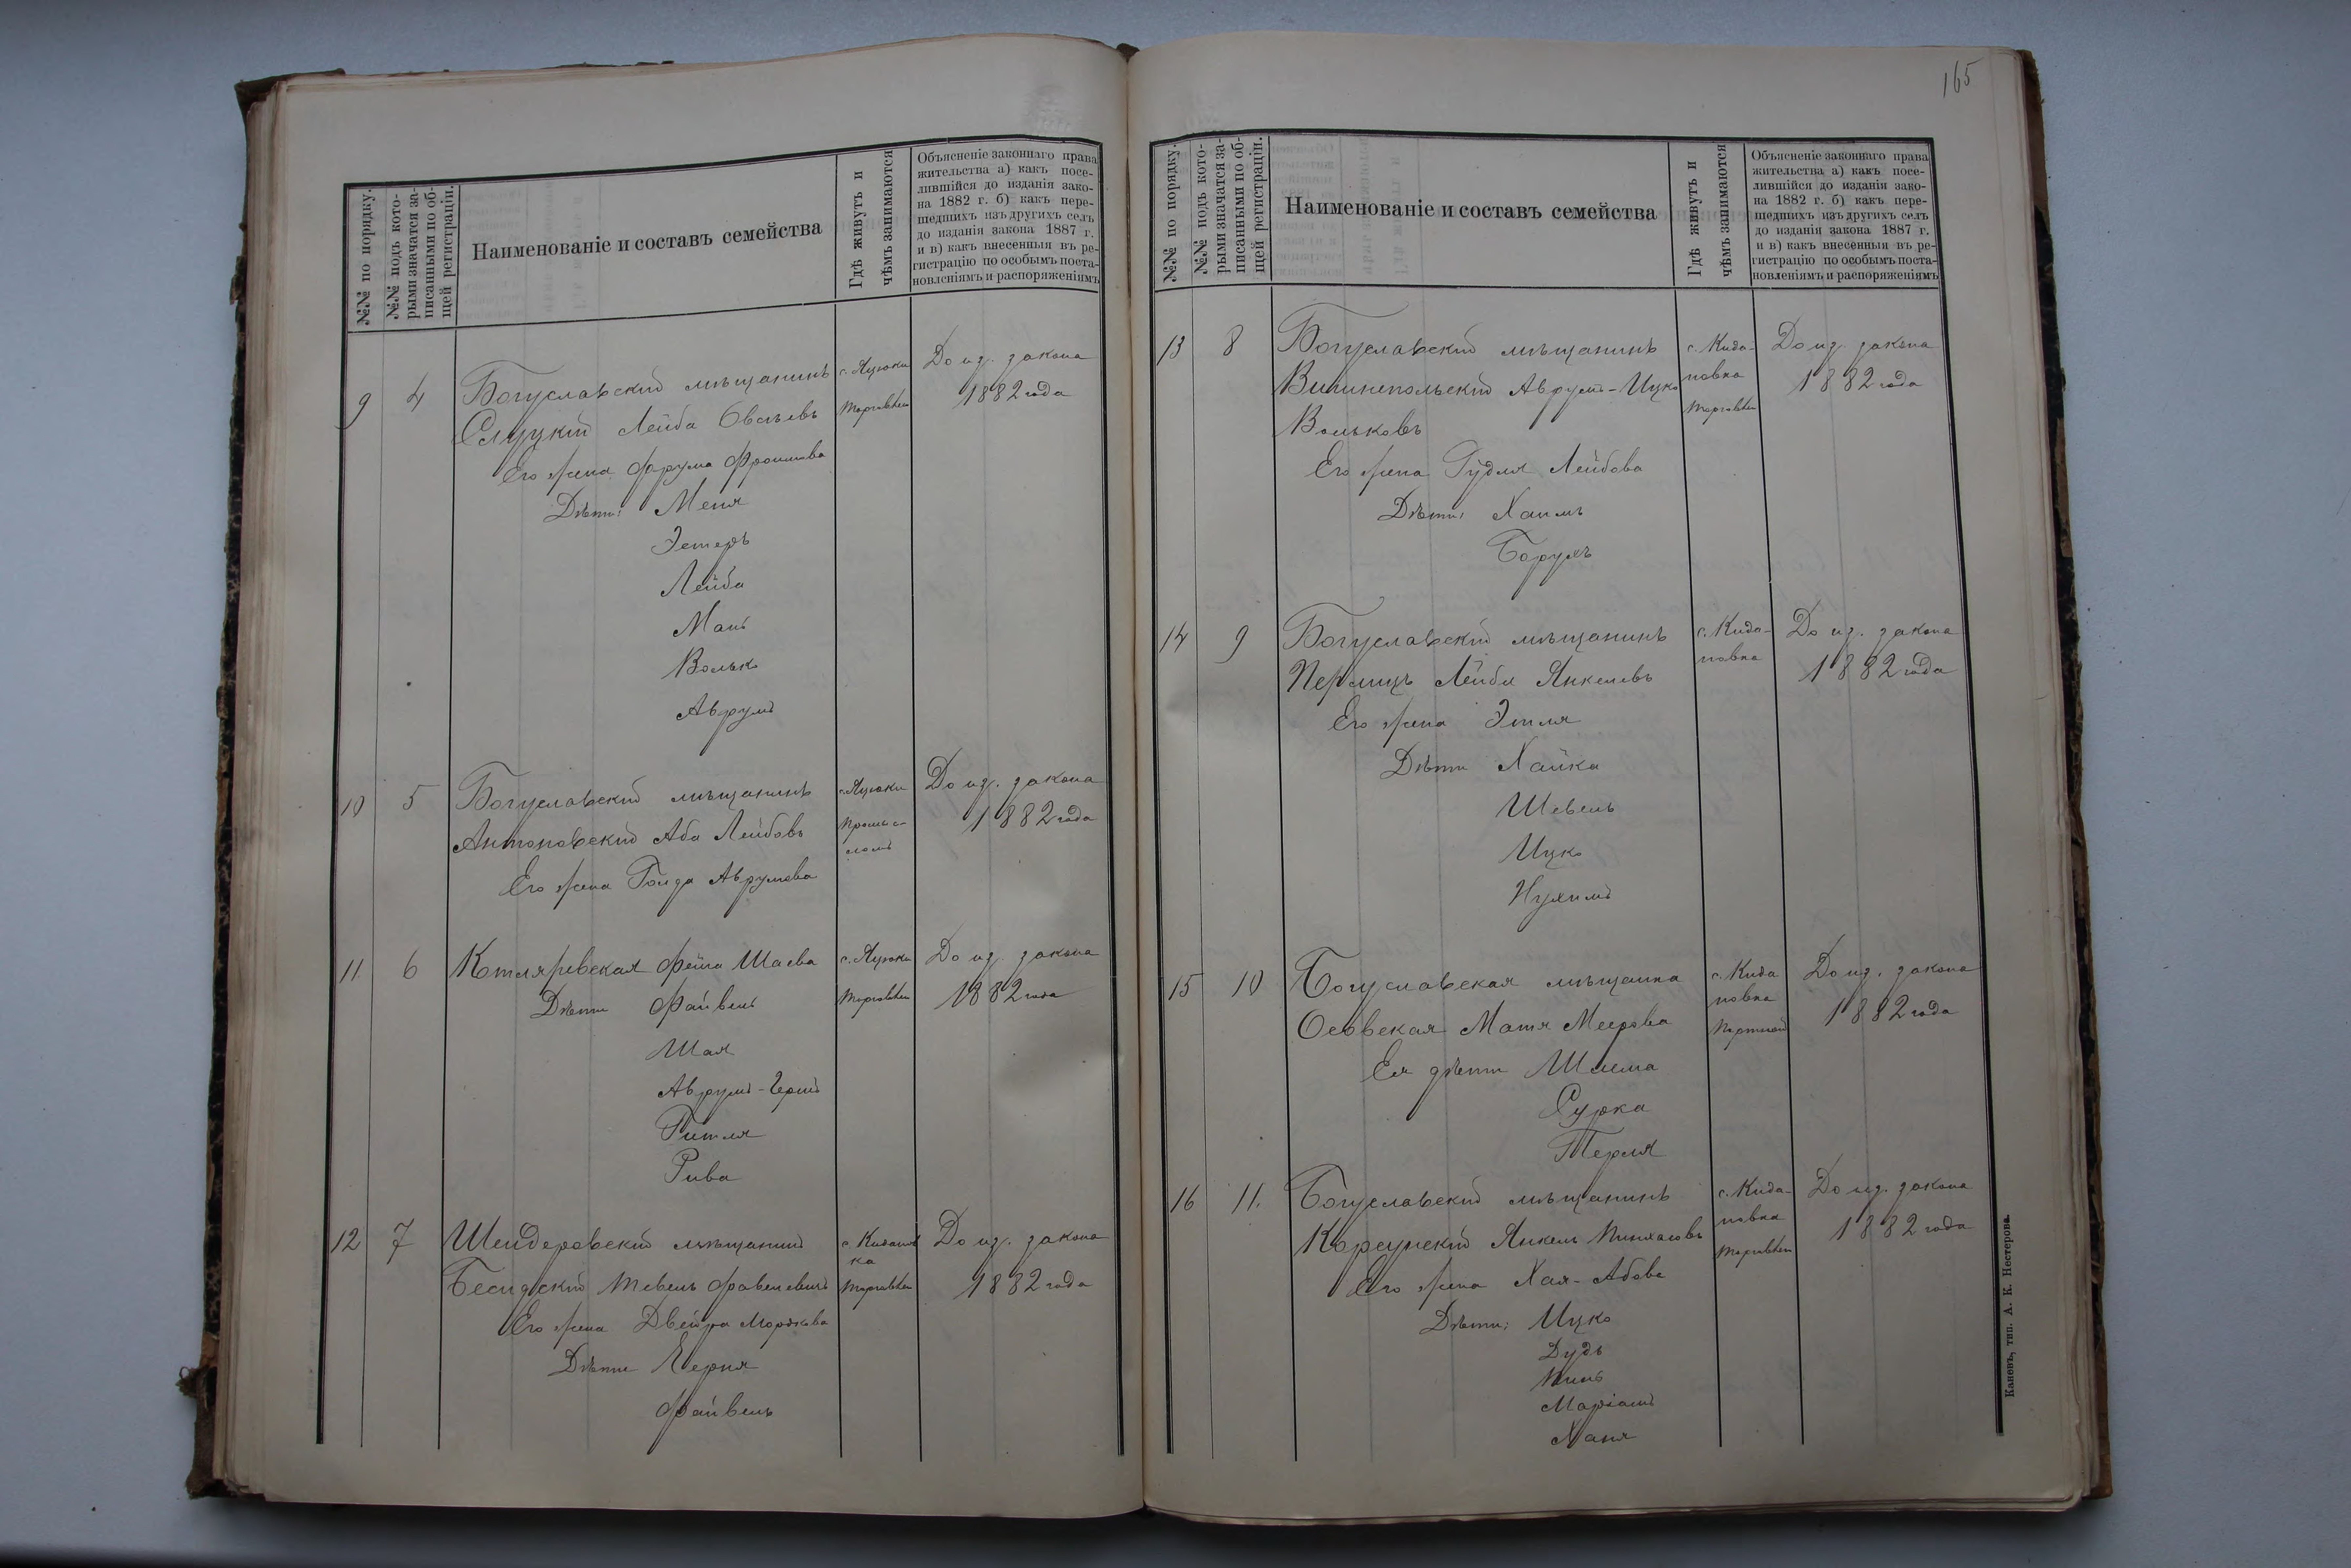 №№ по порядку.
№№ подъ кото-
рыми значатся за-
писанными по об-
щей регистраціи.
Наименованіе и составъ семейства
Гдѣ живутъ и
чѣмъ занимаются
Объясненіе законнаго права
жительства а) какъ посе-
лившійся до изданія зако-
на 1882 г. б) какъ пере-
шедшихъ изъ другихъ селъ
до изданія закона 1887 г.
и в) какъ внесенныя въ ре-
гистрацію по особымъ поста-
новленіямъ и распоряженіямъ
9 4 Богуславскій мѣщанинъ
Слуцкій Лейба Овсѣевъ
Его жена Фрума Фроимова
Дѣти: Меня
Эстеръ
Лейба
Мань
Волько
Аврумъ
с.
торговлей
До из. закона
1882 года
10 5 Богуславскій мѣщанинъ
Антоновскій Аба Лейбовъ
Его жена Голда Аврумова
с.
Промыс-
ломъ
До из. закона
1882 года
11 6 Котляревская Фейга Шаева
Дѣти Файвель
Шая
Аврумъ-Герш
Гитля
Рива
с.
торговлей
До из. закона
1882 года
12 7 Шендеровскій мѣщанинъ
Бесидскій Тевель
Его жена Двейра Мордкова
Дѣти
Файвель
с. Киданов
ка
торговлей
До из. закона
1882 года
165
№№ по порядку.
№№ подъ кото-
рыми значатся за-
писанными по об-
щей регистраціи.
Наименованіе и составъ семейства
Гдѣ живутъ и
чѣмъ занимаются
Объясненіе законнаго права
жительства а) какъ посе-
лившійся до изданія зако-
на 1882 г. б) какъ пере-
шедшихъ изъ другихъ селъ
до изданія закона 1887 г.
и в) какъ внесенныя въ ре-
гистрацію по особымъ поста-
новленіямъ и распоряженіямъ
13 8 Богуславскій мѣщанинъ
Вишнепольскій Аврумъ-Ицко
Вольковъ
Его жена Гудля Лейбова
Дѣти: Хаимъ
Борухъ
с. Кида-
новка
торговлей
До из. закона
1882 года
14 9 Богуславскій мѣщанинъ
Перлицъ Лейбл Янкелевъ
Его жена Этля
Дѣти Хайка
Шевель
Ицко
Нухимъ
с. Кида-
новка
До из. закона
1882 года
15 10 Богуславская мѣщанка
Осовская Матя Меерова
Ея дѣти Шлема
Сурка
Перля
с. Кида
новка
Портной
До из. закона
1882 года
16 11. Богуславскій мѣщанинъ
Корсунскій Янкель Пинхасовъ
Его жена Хая-Абова
Дѣти: Ицко
Дудь
Пинь
Маріамъ
Ханя
с. Кида-
новка
торговлей
До из. закона
1882 года
Каневъ, тип. А. К. Нестерова.